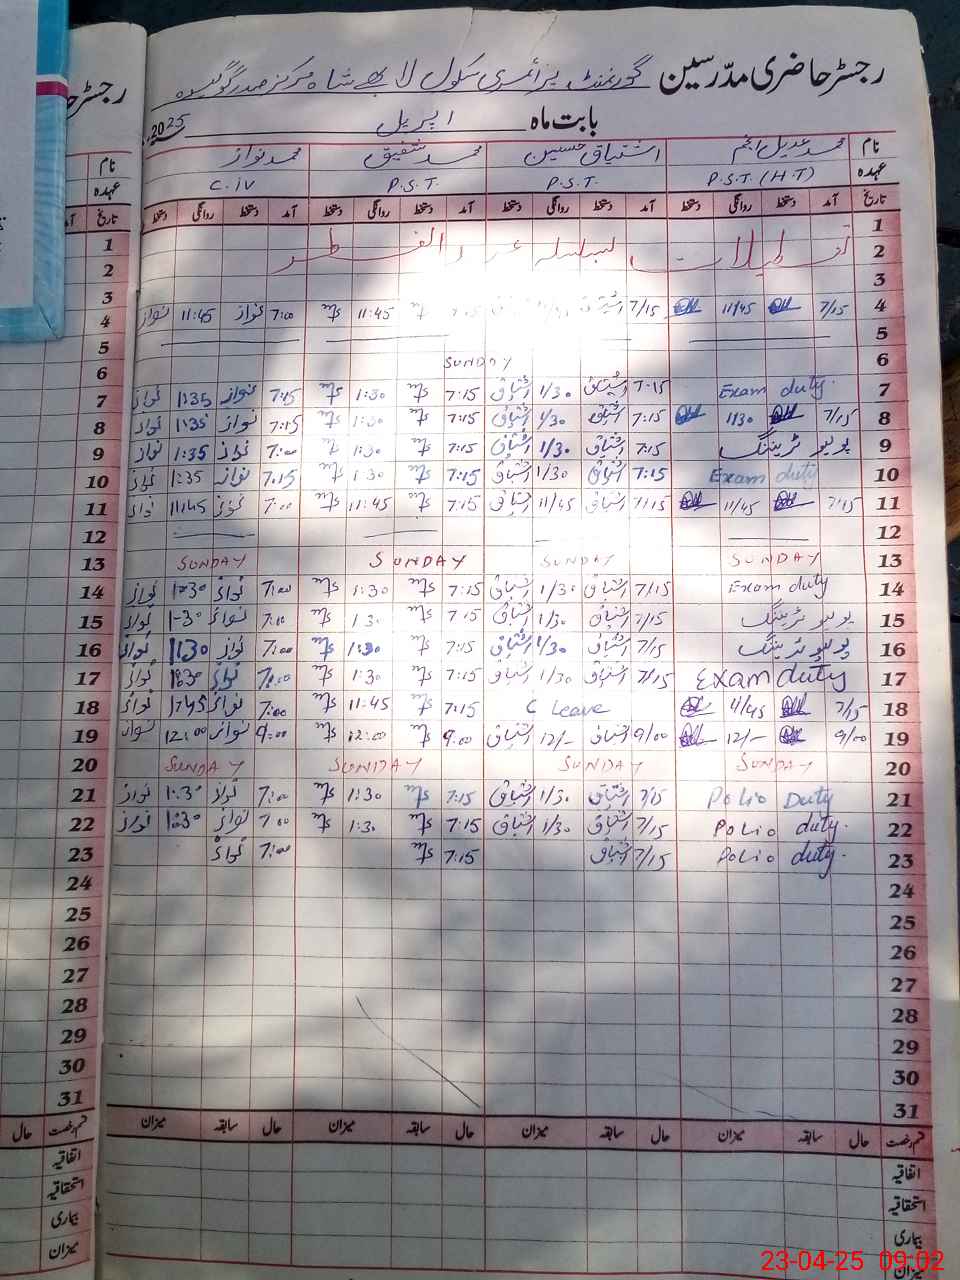 رجسٹر حاضری مدرسین گورنمنٹ پرائمری سکول لابھے شاہ مرکز صدر گوگیرہ
بابت ماہ اپریل 2025ء
نام محمد عدیل انجم اشتیاق حسین محمد شفیق محمد نواز
عہدہ P.S.T. (H.T) P.S.T. P.S.T. C.iv
تاریخ آمد دستخط روانگی دستخط آمد دستخط روانگی دستخط آمد دستخط روانگی دستخط آمد دستخط روانگی دستخط
1
2 تعطیلات بسلسلہ عید الفطر
3
4 7/15 11/45 7/15 اشتیاق 11:45 7:00 نواز 11:45 نواز
5
6 SUNDAY
7 Exam duty. 7:15 اشتیاق 1/30 اشتیاق 7:15 1:30 7:15 نواز 1:35 نواز
8 7/15 1/30 7:15 اشتیاق 1/30 اشتیاق 7:15 1:30 7:15 نواز 1:35 نواز
9 پولیو ٹریننگ 7:15 اشتیاق 1/30 اشتیاق 7:15 1:30 7:00 نواز 1:35 نواز
10 Exam duty 7:15 اشتیاق 1/30 اشتیاق 7:15 1:30 7:15 نواز 1:35 نواز
11 7/15 11/45 7/15 اشتیاق 11/45 اشتیاق 7:15 11:45 7:00 نواز 11:45 نواز
12
13 SUNDAY SUNDAY SUNDAY SUNDAY
14 Exam duty 7/15 اشتیاق 1/30 اشتیاق 7:15 1:30 7:00 نواز 1:30 نواز
15 پولیو ٹریننگ 7/15 اشتیاق 1/30 اشتیاق 7:15 1:30 7:00 نواز 1-30 نواز
16 پولیو ٹریننگ 7/15 اشتیاق 1/30 اشتیاق 7:15 1:30 7:00 نواز 1:30 نواز
17 Exam duty 7/15 اشتیاق 1/30 اشتیاق 7:15 1:30 7:00 نواز 1:30 نواز
18 7/15 11/45 C Leave 7:15 11:45 7:00 نواز 11:45 نواز
19 9/00 12/- 9/00 اشتیاق 12/- اشتیاق 9:00 12:00 9:00 نواز 12:00 نواز
20 SUNDAY SUNDAY SUNDAY SUNDAY
21 Polio Duty 7/15 اشتیاق 1/30 اشتیاق 7:15 1:30 7:00 نواز 1:30 نواز
22 Polio duty. 7/15 اشتیاق 1/30 اشتیاق 7:15 1:30 7:00 نواز 1:30 نواز
23 Polio duty. 7/15 اشتیاق 7:15 7:00 نواز
24
25
26
27
28
29
30
31
قسم رخصت حال سابقہ میزان حال سابقہ میزان حال سابقہ میزان حال سابقہ میزان
اتفاقیہ
استحقاقیہ
بیماری
میزان
رجسٹر
نام
عہدہ
تاریخ
1
2
3
4
5
6
7
8
9
10
11
12
13
14
15
16
17
18
19
20
21
22
23
24
25
26
27
28
29
30
31
قسم رخصت حال
اتفاقیہ
استحقاقیہ
بیماری
میزان
23-04-25 09:02